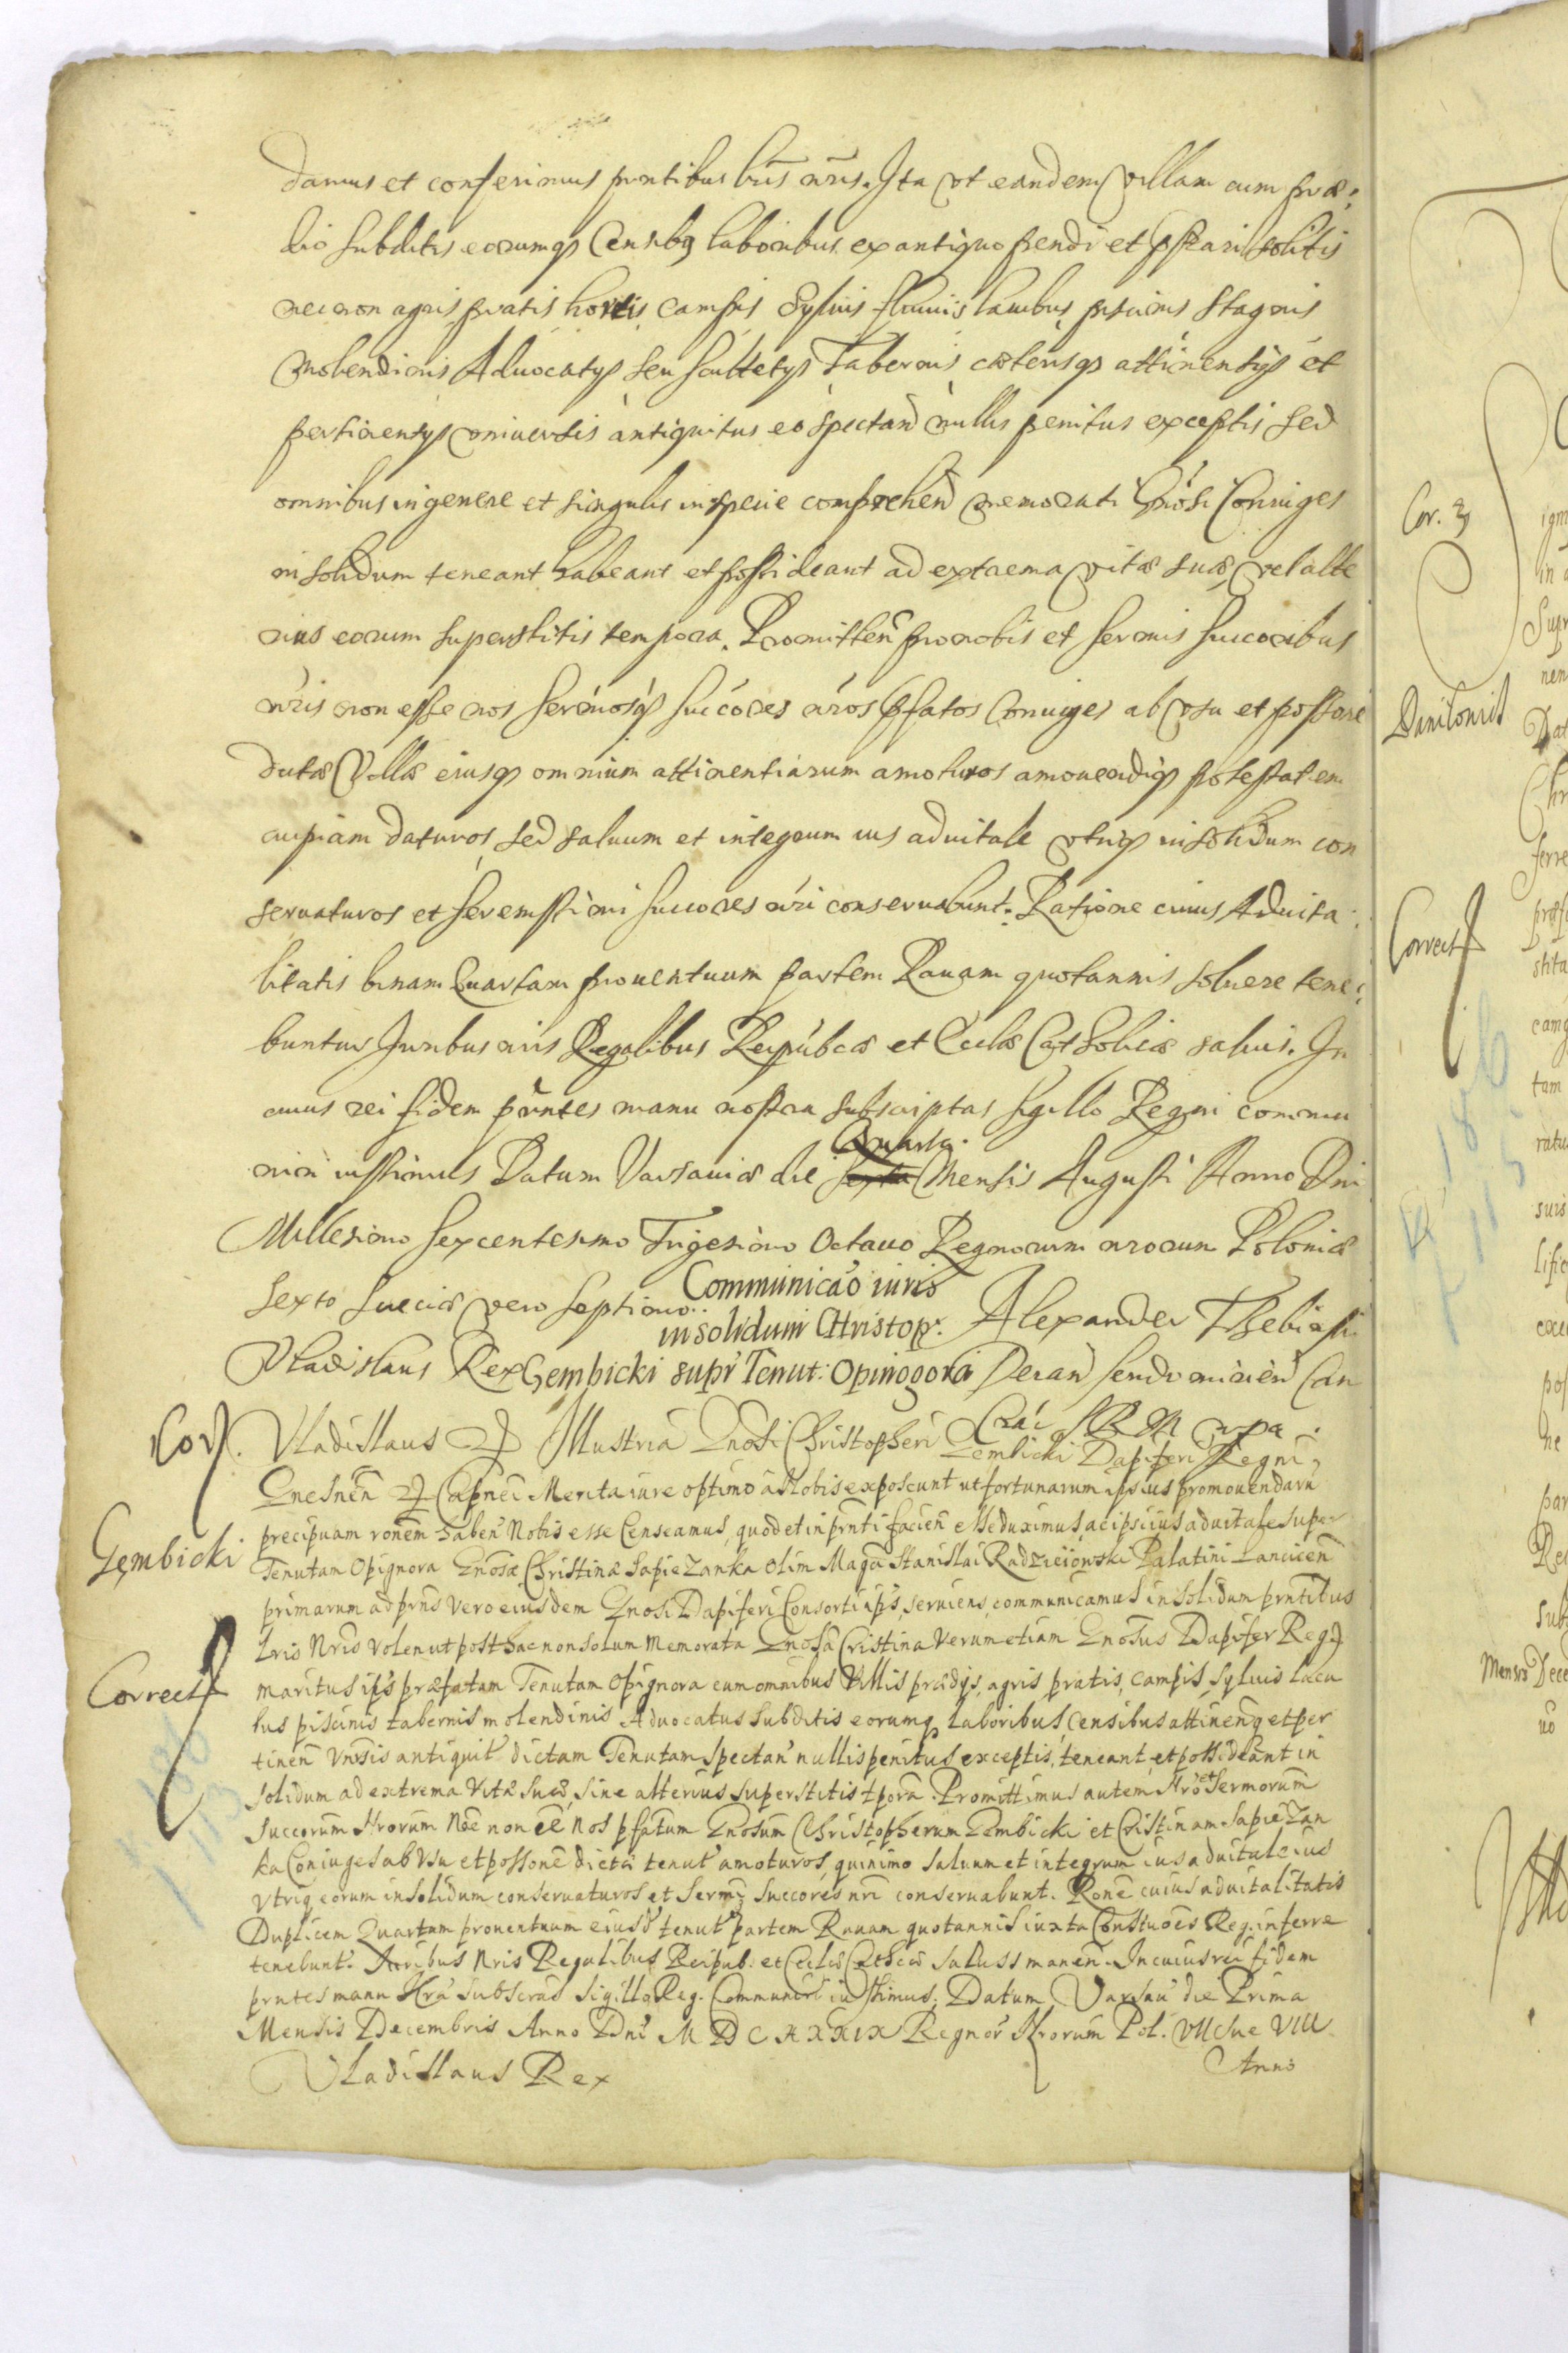 damus et conferimus pntibus lris nris. Ita vt eandem villam cum præ:
dio subditis eorumq; Censibq laboribus ex antiquo pendi et pstari solitis
nec non agris pratis hortis campis Syluis fluuiis lacubus piscinis stagnis
Molendinis Aduocatijs seu scultetijs Tabernis cæterisq; attinentijs et
pertinentijs vniuersis antiquitus eo spectan nullis penitus exceptis sed
omnibus in genere et singulis in specie comprehen memorati Gnosi Coniuges
in solidum teneant habeant et possideant ad extrema vitæ suæ, vel alte
rius eorum superstitis tempora. Promitten pro nobis et sermis succoribus
nris non esse nos sermosq; succores nros pfatos Coniuges ab vsu et possone
dictæ Villæ eiusq; omnium attinentiarum amoturos amouendiq; potestatem
cuipiam daturos, sed saluum et integrum ius aduitale vtriq; in solidum con
seruaturos et serenissimi succores nri conseruabunt. Ratione cuius Aduita:
litatis binam Quartam prouentuum partem Rauam quotannis soluere tene:
buntur Iuribus nris Regalibus Reipubcæ et Ecclæ Catholicæ saluis. In
cuius rei fidem pnntes manu nostra subscriptas sigillo Regni commu
niri iussimus Datum Varsauiæ die sexta Quarta. Mensis Augusti Anno Dni
Millesimo sexcentesimo Trigesimo Octauo Regnorum nrorum Poloniæ
sexto sueciæ vero septimo..
Communicao iuris
in solidum Christop:
Gembicki supr Tenut: Opinogora
Alexander Trzebinski
Vladislaus Rex
Decan sendomirien Can
Crac S R M
Cor.
Vladislaus Illustria Gnosi Christopheri Gembicki Dapiferi Regni,
Gnesnen Capnei Merita iure optimo a Nobis exposcunt ut fortunarum ipsius promouendaru
Gembicki
precipuam ronem haben Nobis esse Censeamus, quod et in prnti facien esse duximus, ac ipsius aduitale super
Tenutam Opignora Gnosæ Christinæ Sapiezanka olim Magci Stanislai Radzieiowski Palatini Lancicen
primarum ad prns vero eiusdem Gnosi Dapiferi Consorti ips seruiens, communicamus in solidum prntibus
lris Nris volen ut posthac non solum Memorata Gnosa Cristina verum etiam Gnosus Dapifer Regi
Correct
maritus ips præfatam Tenutam Opignora cum omnibus Villis prædijs, agris pratis, campis, syluis lacu
bus piscinis tabernis molendinis Aduocatus subditis eorumq; laboribus, censibus attinenq et per
tinen vnrsis antiquit dictam Tenutam spectan nullis penitus exceptis, teneant, et possideant in
solidum ad extrema vitæ suæ, siue alterius superstitis tpora. Promittimus autem Nro et Sermorum
succorum Nrorum Noe non ee nos pfatum Gnosum Christopherum Gembicki et Cristinam Sapiezan
ka Coniuges ab vsu et possone dictæ tenut amoturos, quinimo saluum et integrum ius aduitale eius
vtriq; eorum in solidum conseruaturos et Sermi succores nri conseruabunt. Rone cuius aduitalitatis
Duplicem Quartam prouentuum eiusd tenut partem Rauam quotannis iuxta Constuoes Reg. inferre
tenebunt. Iuribus Nris Regalibus Reipub. et Ecclæ Cathcæ saluis manen. In cuius rei fidem
prntes manu Nra subscras sigillo Reg. Communiri iussimus. Datum Varsau die Prima
Mensis Decembris Anno Dni MDCXXXIX Regnor Nrorum Pol. VII Sue VIII
Anno
Vladislaus Rex
Cor.
Danilowicz
Correct
Mensis Dece